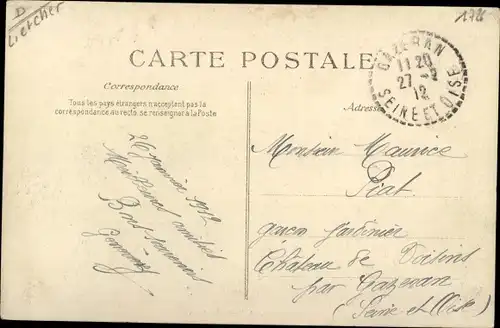 D
Liescher
1728
CARTE POSTALE
Correspondance
Tous les pays étrangers n'acceptent pas la
correspondance au recto. se renseigner à la Poste
Adresse
GAZERAN
11 20
27 -2
12
SEINE ET OISE
26 janvier 1912
Bons souvenirs
Monsieur Maurice
Piat
garçon jardinier
Château de Voisins
par Gazeran
(Seine et Oise)